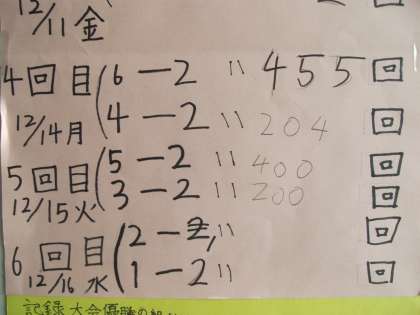 12/11金
4回目 6-2 〃 455回
12/14月 4-2 〃 204回
5回目 5-2 〃 400回
12/15火 3-2 〃 200回
6回目 2-2 〃 回
12/16水 1-2 〃 回
記録大会優勝の